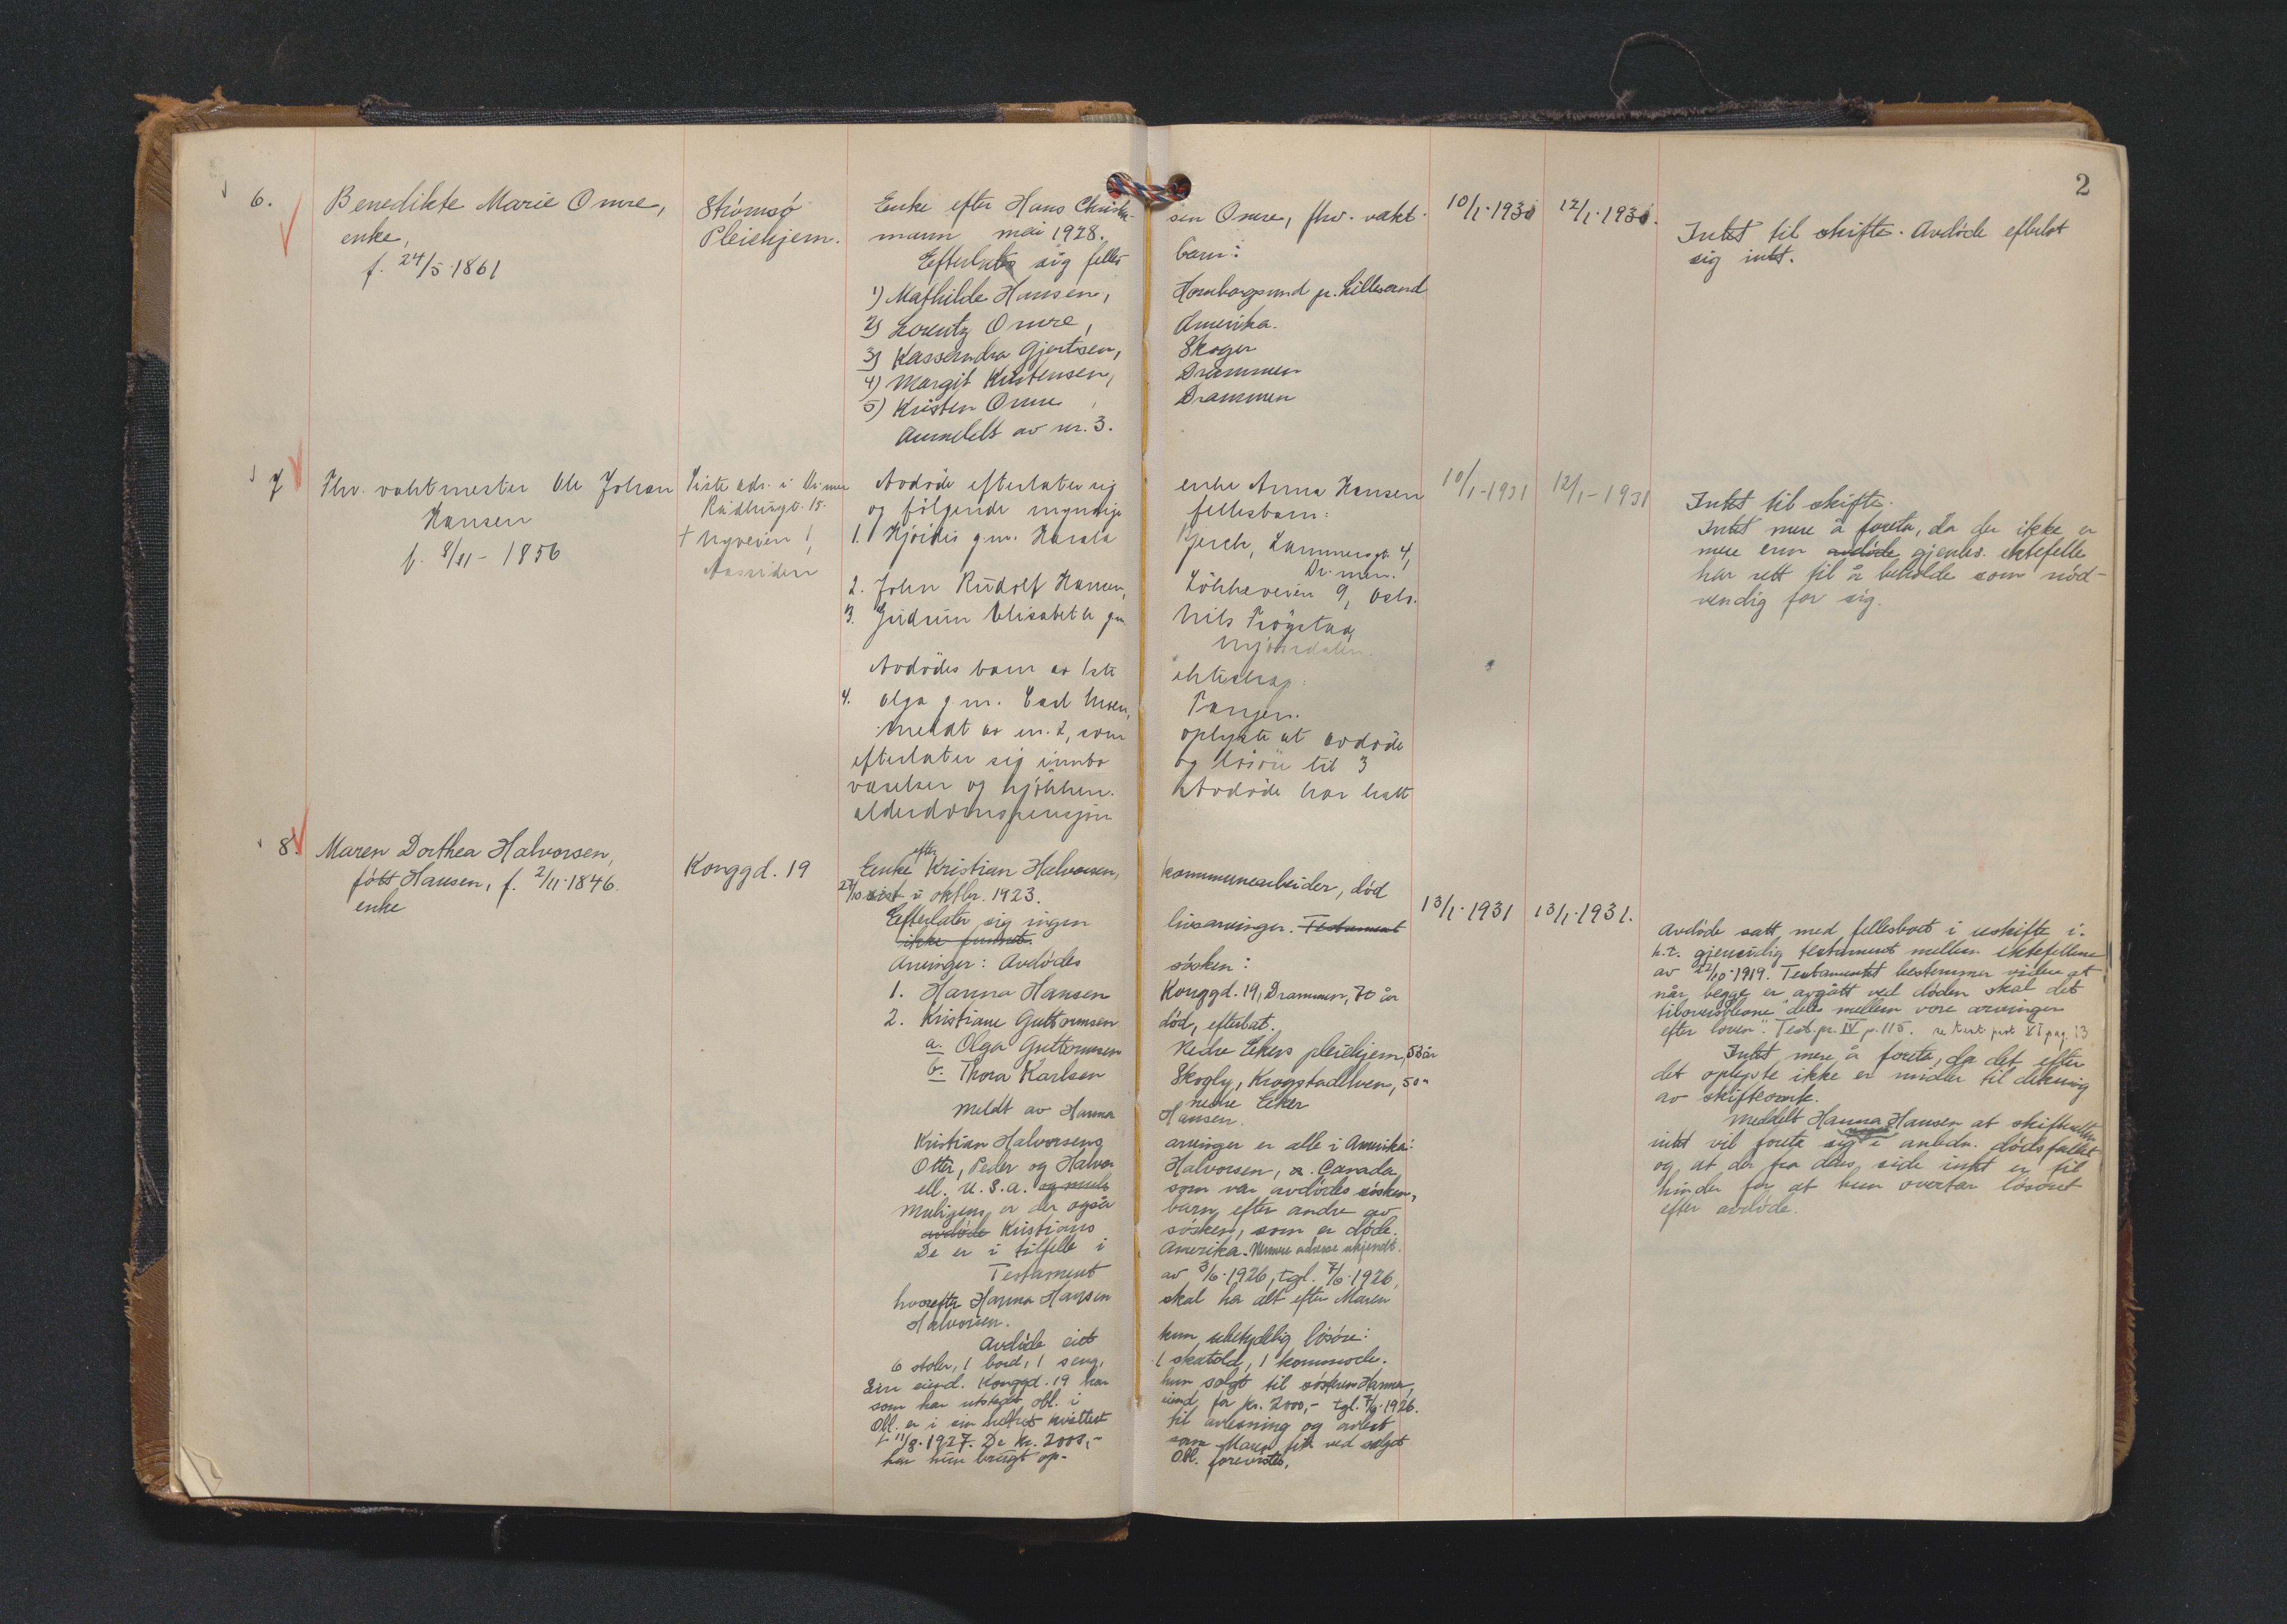 2
6.
Benedikte Marie Omre,
enke,
f. 24/5-1861
Strömsö
Pleiehjem.
Enke efter Hans Christen-
sen Omre, fhv. vakt-
mann mai 1928.
Efterlater sig felles
barn:
1) Mathilde Hansen, Homborgsund pr. Lillesand
2) Lorentz Omre, Amerika.
3) Kassandra Gjertsen, Skoger
4) Margit Kristensen, Drammen
5) Kristen Omre, Drammen
Anmeldt av nr. 3.
10/1-1930
12/1-1930.
Intet til skifte. Avdöde efterlot
sig intet.
7
Fhv. vaktmester Ole Johan
Hansen
f. 8/11-1856
Siste adr. i Dr.men
Rådhusgt. 15.
† Nyveien 1,
Aassiden
Avdöde efterlater sig enke Anna Hansen
og fölgende myndige fellesbarn:
1. Hjördis g.m. Harald Bjerch, Lammersgt. 4,
Dr.men.
2. John Rudolf Hansen, Lökkaveien 9, Oslo.
3. Gudrun Elisabeth gm. Nils Frögstad,
Mjöndalen.
Avdödes barn av 1ste ekteskap:
4. Olga g.m. Carl Moen, Tangen.
Meldt av nr. 2, som oplyste at avdöde
efterlater sig innbo og lösöre til 3
værelser og kjökken. Avdöde har hatt
alderdomspensjon
10/1-1931
12/1-1931
Intet til skifte.
Intet mere å foreta, da der ikke er
mere enn avdöde gjenlev. ektefelle
har rett til å beholde som nöd-
vendig for sig.
8.
Maren Dorthea Halvorsen,
født Hansen, f. 2/11-1846.
enke
Konggd. 19
Enke efter Kristian Halvorsen, kommunearbeider, död
27/10 sist i oktbr. 1923.
Efterlater sig ingen livsarvinger. Testament
ikke funnet.
Arvinger: Avdödes søsken:
1. Hanna Hansen Konggd. 19, Drammen, 70 år
2. Kristiane Guttormsen död, efterlat.
a. Olga Guttormsen Nedre Ekers pleiehjem, 53 år
b. Thora Karlsen Skogly, Krogstadelven, 50 "
nedre Eker
Meldt av Hanna Hansen.
Kristian Halvorsens arvinger er alle i Amerika:
Otter, Peder og Halvor Halvorsen, a. Canada
ell. U.S.A. som var avdödes søsken,
Muligens er der også barn efter andre av
avdöde Kristians søsken, som er döde.
De er i tilfelle i Amerika. Nermere adresse ukjendt.
Testament av 3/6-1926, tgl. 7/6-1926,
hvorefter Hanna Hansen skal ha alt efter Maren
Halvorsen.
Avdöde eiet kun ubetydelig lösöre:
6 stoler, 1 bord, 1 seng, 1 skatold, 1 kommode.
Sin eiend. Konggd. 19 har hun solgt til søsteren Hanna,
som har utstedt obl. i eiend. for kr. 2000,- tgl. 7/6-1926.
Obl. er i sin helhet kvittert til avlesning og avlest
d. 11/8-1927. De kr. 2000,- som Maren fik ved salget
har hun brugt op. Obl. forevistes.
13/1-1931
13/1-1931.
Avdöde satt med fellesboet i uskifte i.
h.t. gjensidig testament mellem ektefellene
av 22/10-1919. Testamentet bestemmer videre at
når begge er avgått ved döden skal det
tiloversblevne "deles mellem vore arvinger
efter loven". Test.pr. IV p. 115. se test. prot. VI pag. 13
Intet mere å foreta, da det efter
det oplyste ikke er midler til dekning
av skifteomk.
Meddelt Hanna Hansen at skifteretten
intet vil foreta sig i anledn. dödsfallet
og at der fra dens side intet er til
hinder for at hun overtar lösöret
efter avdöde.